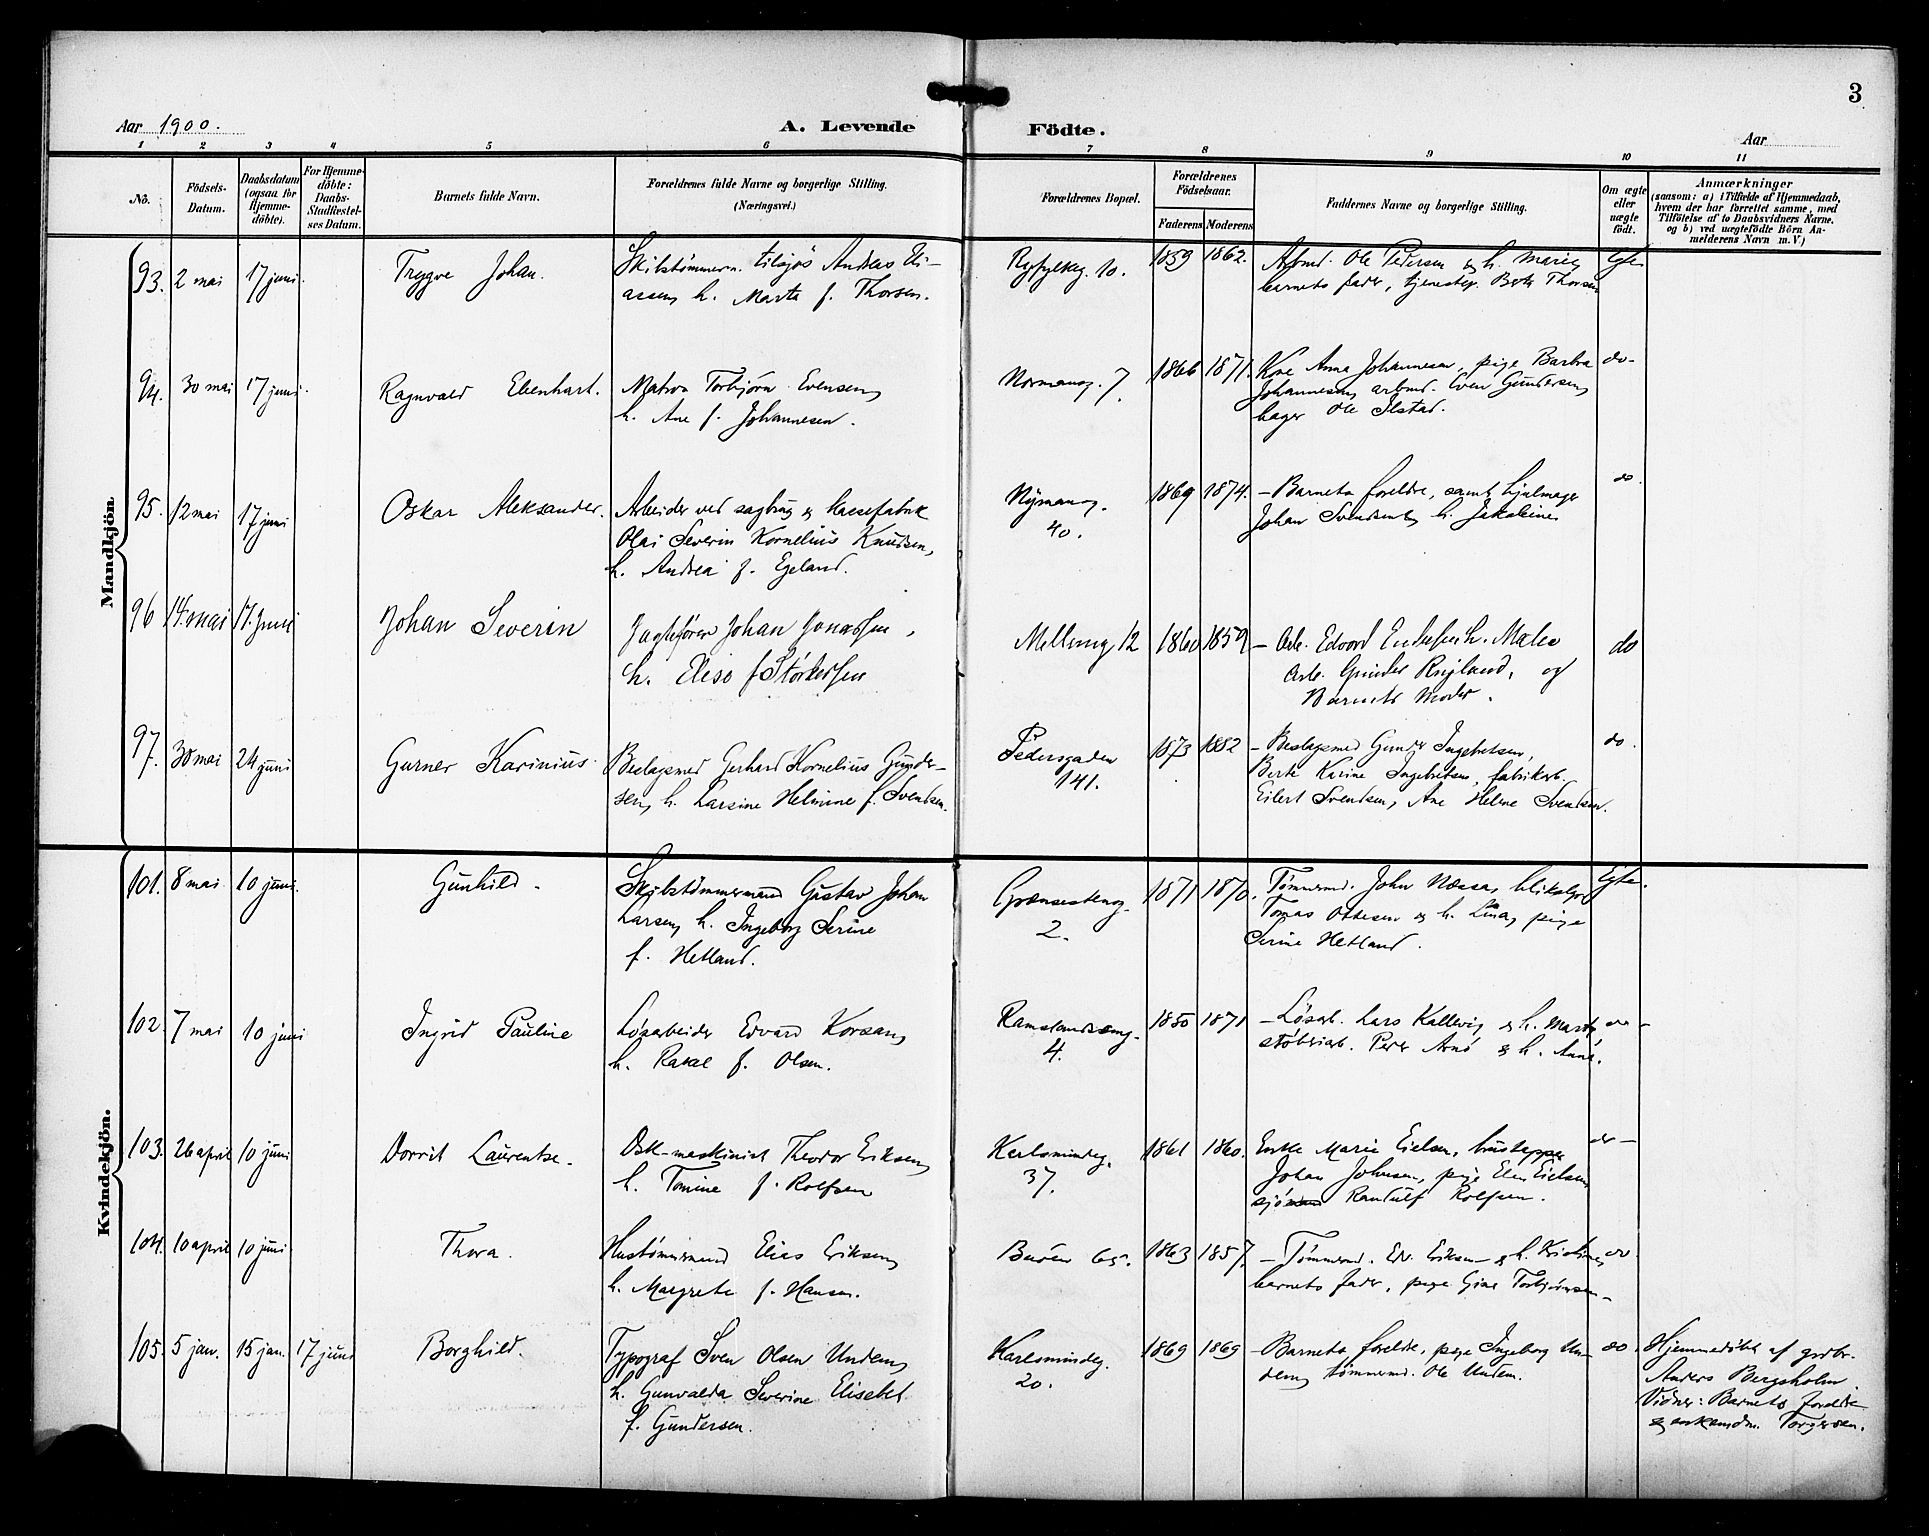 3
Aar 1900.
A. Levende Födte.
Aar
1 2 3 4 5 6 7 8 9 10 11
No.
Födsels-
Datum.
Daabsdatum
(ogsaa for
Hjemme-
döbte).
For Hjemme-
döbte:
Daabs-
Stadfæstel-
ses Datum.
Barnets fulde Navn.
Forældrenes fulde Navne og borgerlige Stilling.
(Næringsvei.)
Forældrenes Bopæl.
Forældrenes
Födselsaar.
Faderens Moderens
Faddernes Navne og borgerlige Stilling.
Om ægte
eller
uægte
födt.
Anmærkninger
(saasom: a) i Tilfælde af Hjemmedaab,
hvem der har forrettet samme, med
Tilföielse af to Daabsvidners Navne.
og b) ved uægtefödte Börn An-
melderens Navn m. V.)
Mandkjön.
93. 2 mai 17 juni
Trygve Johan.
Skibstømmerm. tilsjøs Andreas Eli-
assen, h. Marta f. Thorsen.
Ryfylkeg. 10.
1859 1862.
Arbmd. Ole Pedersen og h. Marie,
barnets fader, tjenestep. Berta Thorsen
Egte
94. 30 mai 17 juni
Ragnvald Ebenhart.
Matros Torbjørn Evensen,
h. Ane f. Johannesen.
Normansg. 7.
1866 1871.
Kone Anna Johannesen, pige Barbra
Johannesen, arbmd. Even Gundersen,
bager Ole Ilstad.
do-
95. 12 mai 17 juni
Oskar Aleksander.
Arbeider ved sagbrug og kassefabrik
Olai Severin Kornelius Knudsen,
h. Andrea f. Egeland.
Nymansg.
40.
1869 1874.
- Barnets foreldre, samt hjulmager
Johan Svendsen og h. Jakobine
do.
96 14. mai 17. Juni
Johan Severin
Jagtefører Johan Jonassen,
h. Elise f Størkersen
Mellemg 12
1860 1859
- Arb. Edvard h. Malene
Arb. Gunder og
Barnets Moder.
do
97. 30 mai 24 juni
Garner Karinius
Beslagsmed Gerhard Kornelius Gunder-
sen, h. Larsine Helmine f. Svendsen.
Pedersgaden
141.
1873 1882
- Beslagsmed Gunder Ingebretsen,
Berte Karine Ingebretsen, fabrikarb.
Eilert Svendsen, Ane Helene Svendsen.
do.
Kvindekjön.
101. 8 mai 10 juni
Gunhild.
Skibstømmermand Gustav Johan
Larsen, h. Ingeborg Serine
f. Hetland.
Grænsesteng.
2.
1871 1870.
Tømmermd. John Næssa, blikslager
Tomas Ottesen og h. Lina, pige
Serine Hetland.
Egte.
102. 7 mai 10 juni
Ingrid Pauline
Løsarbeider Edvard Korsan,
h. Rakel f. Olsen.
Ramslandsveng.
4.
1850 1871
- Løsarb. Lars Kallevig og h. Marta,
støberiarb. Peder Arnø & h. Anna.
do -
103. 26 april 10 juni
Dorrit Laurentse.
Dsk-maskinist Theodor Eriksen,
h. Tomine f. Rolfsen
Karlsmindeg.
37.
1861 1860.
Enke Marie Eielsen,
Johan Johnsen, pige Elen Eielsen,
Randulf Rolfsen.
do -
104. 10 april 10 juni
Thora.
Hustømmermand Elias Eriksen,
h. Margrete f. Hansen.
Buøen 65.
1863 1857.
- Tømmermd. Edv. Eriksen og h. Kristine,
barnets fader, pige Gine Torbjørnsen.
do
105. 5 jan. 15 jan. 17 juni
Borghild.
Typograf Sven Olsen Undem,
h. Gunvalda Severine Elisabet
f. Gundersen.
Karlsmindeg.
20.
1869 1869
- Barnets foreldre, pige Ingeborg Un-
dem, tømmermd. Ole Undem.
do.
Hjemmedøbt af grdbr.
Anders Bergsholm.
Vidner: Barnets foreldre
& enkemdm. Torgersen.